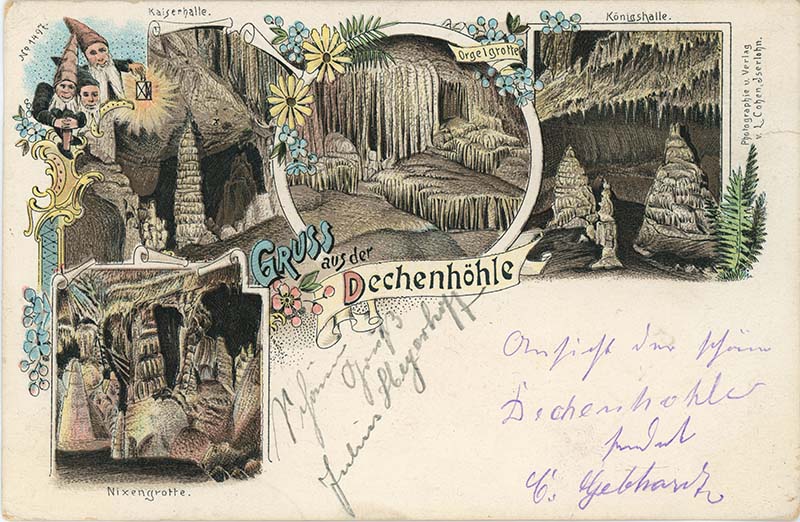 No 1497.
Kaiserhalle.
Orgelgrotte
Königshalle.
Photographie u. Verlag
v. L. Cohen, Iserlohn.
GRUSS
aus der
Dechenhöhle
Nixengrotte.
Gruß
Julius Meyerhoff
Ansicht der schönen
Dechenhohle
sendet
C. Gebhardt